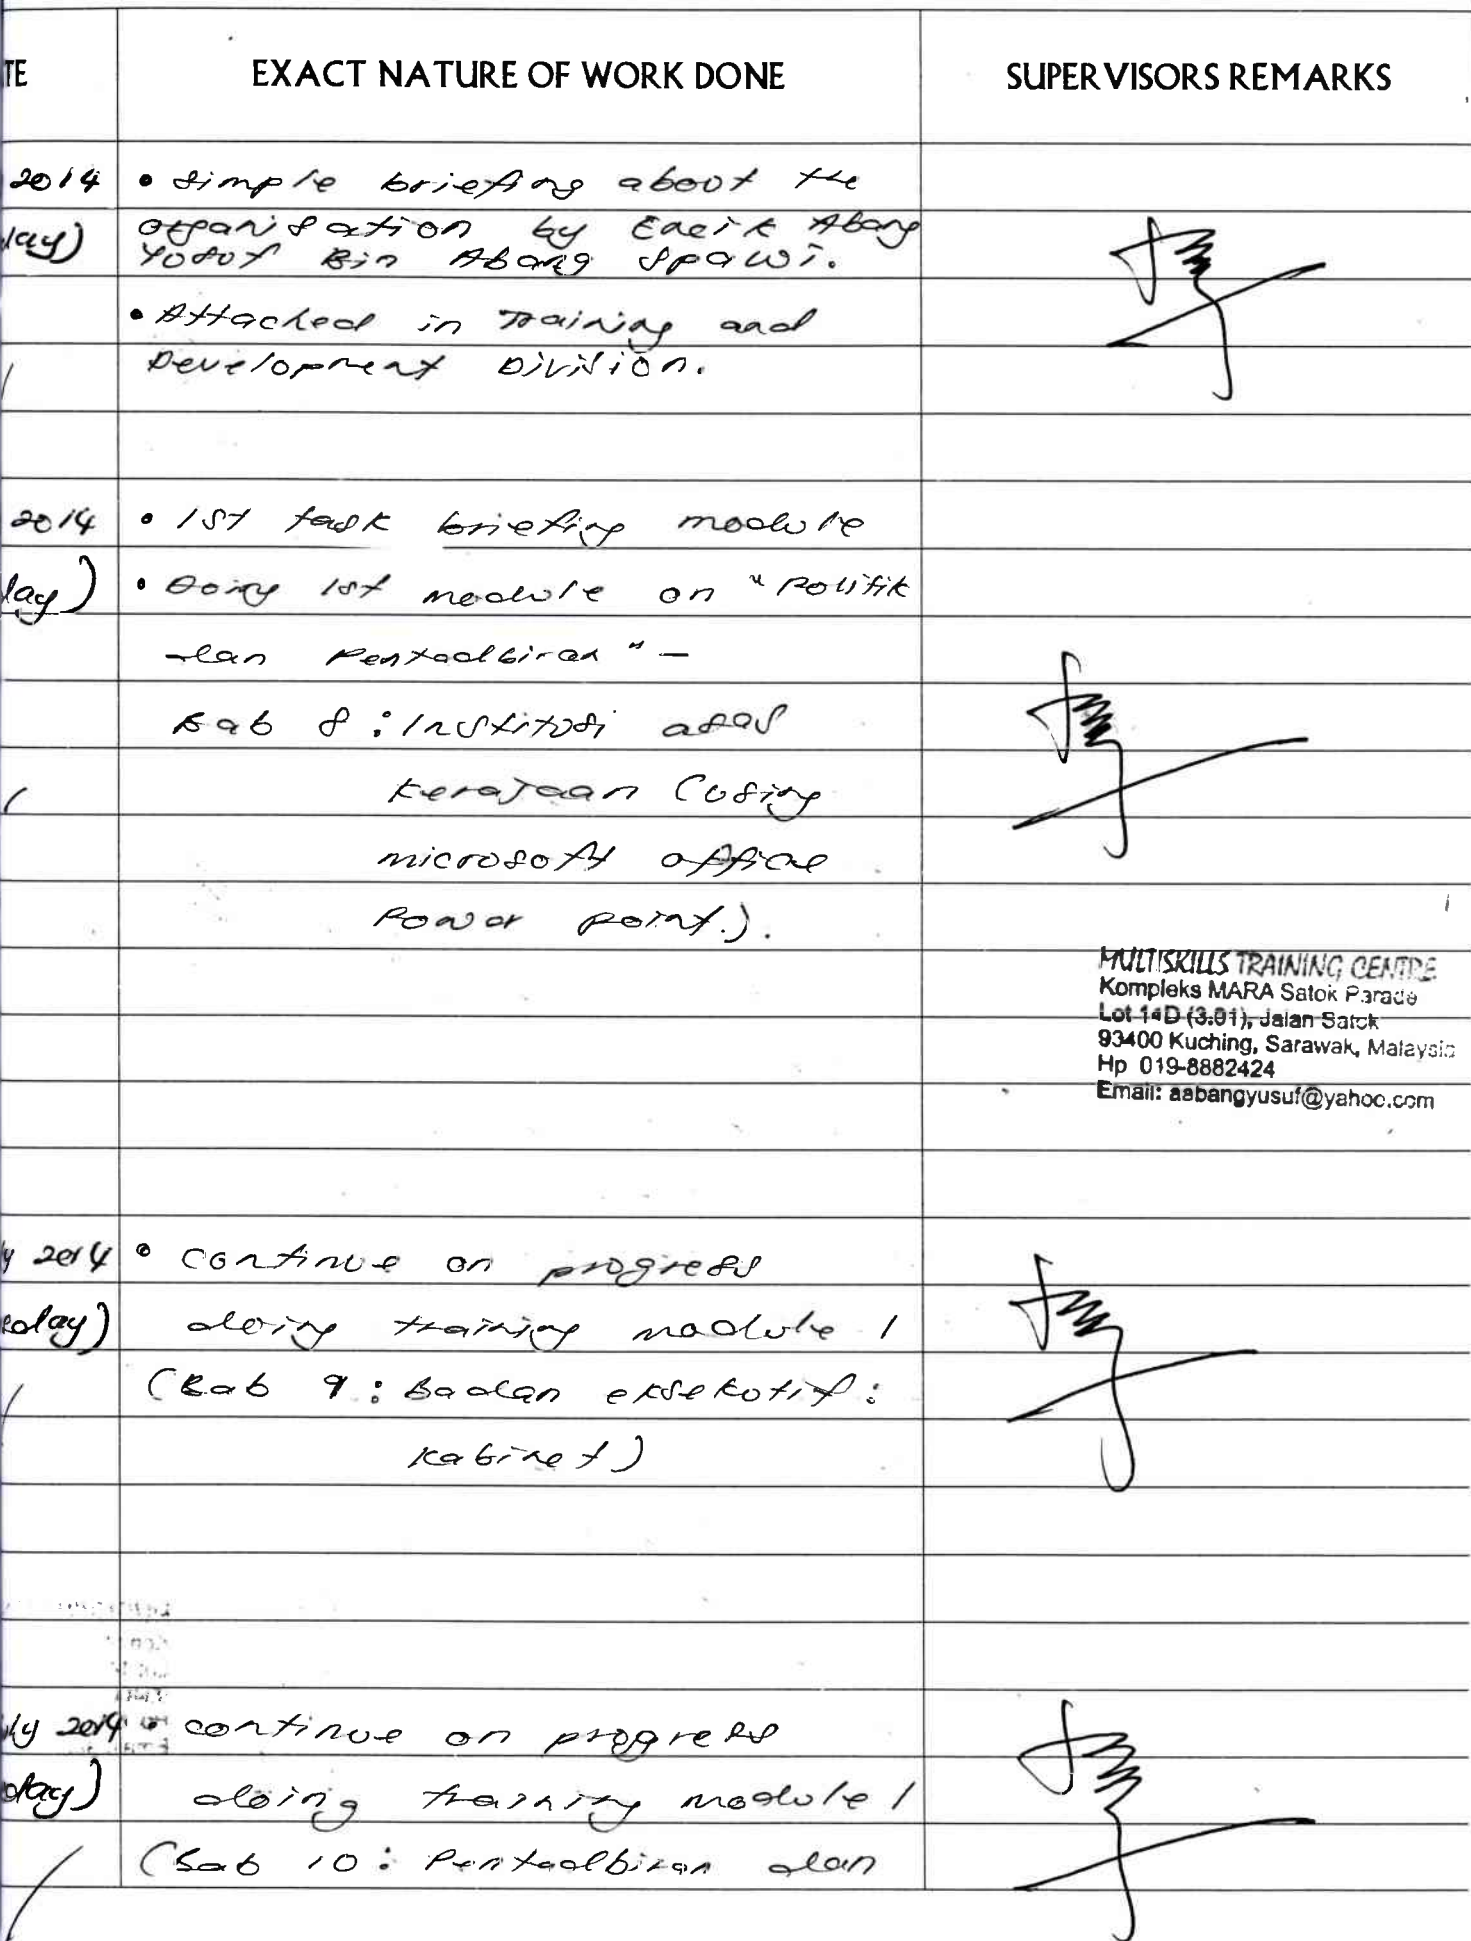 TE EXACT NATURE OF WORK DONE SUPERVISORS REMARKS
2014 • Simple briefing about the
day) organisation by Encik Abang
Yusuf Bin Abang Spawi.
• Attached in Training and
Development Division.
2014 • 1st task briefing module
day) • Doing 1st module on "Politik
dan Pentadbiran" –
Bab 8 : Institusi asas
Kerajaan (Using
microsoft office
Power point.).
MULTISKILLS TRAINING CENTRE
Kompleks MARA Satok Parade
Lot 14D (3.01), Jalan Satok
93400 Kuching, Sarawak, Malaysia
Hp 019-8882424
Email: aabangyusuf@yahoo.com
y 2014 • continue on progress
day) doing training module 1
(Bab 9 : Badan eksekutif :
kabinet)
ly 2014 • continue on progress
day) doing training module 1
(Bab 10 : Pentadbiran dan